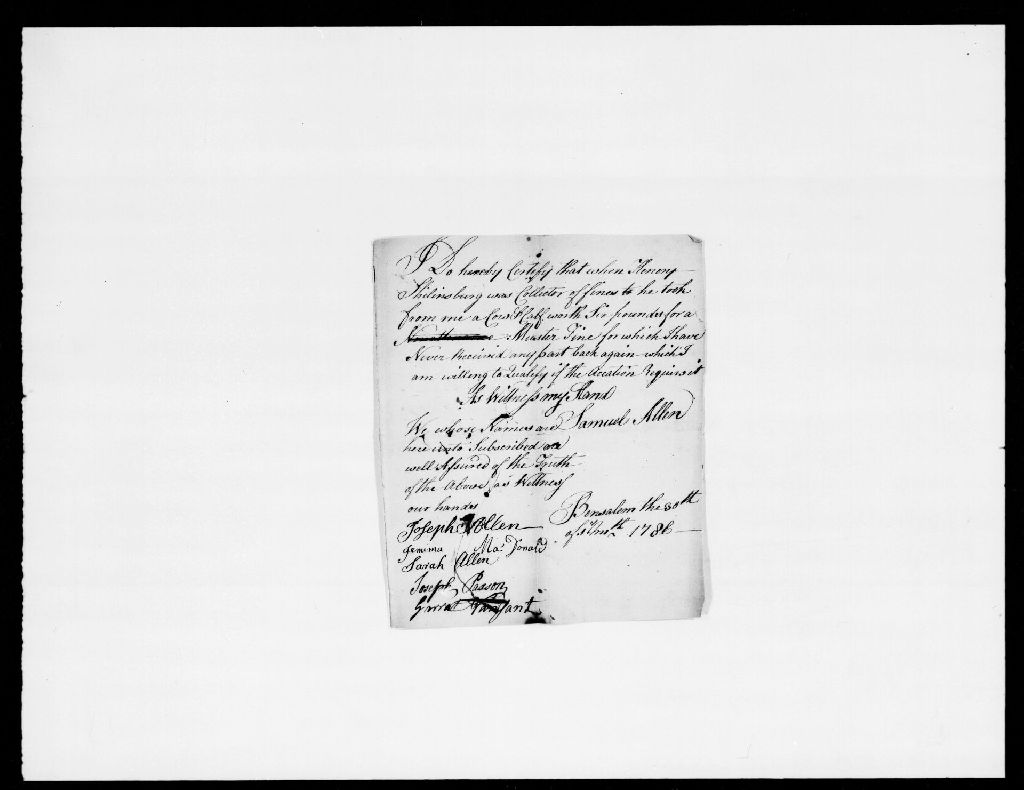 I Do hereby Certify that when Henery
Shilinsburg was Collector of fines to he took
from me a Cow & Calf worth Six pounds for a
Muster Fine for which I have
Never Received any part back again which I
am willing to Qualify if the Acation Requires it
As Wittness my Hand
Samuel Allen
We whose Names are
here unto Subscribed are
well Assured of the Truth
of the Above as Wittness
our hands
Bensalem the 30th
of mth 1786
Joseph Allen
Jemima Mac Donald
Sarah Allen
Joseph
Garrat Vansant